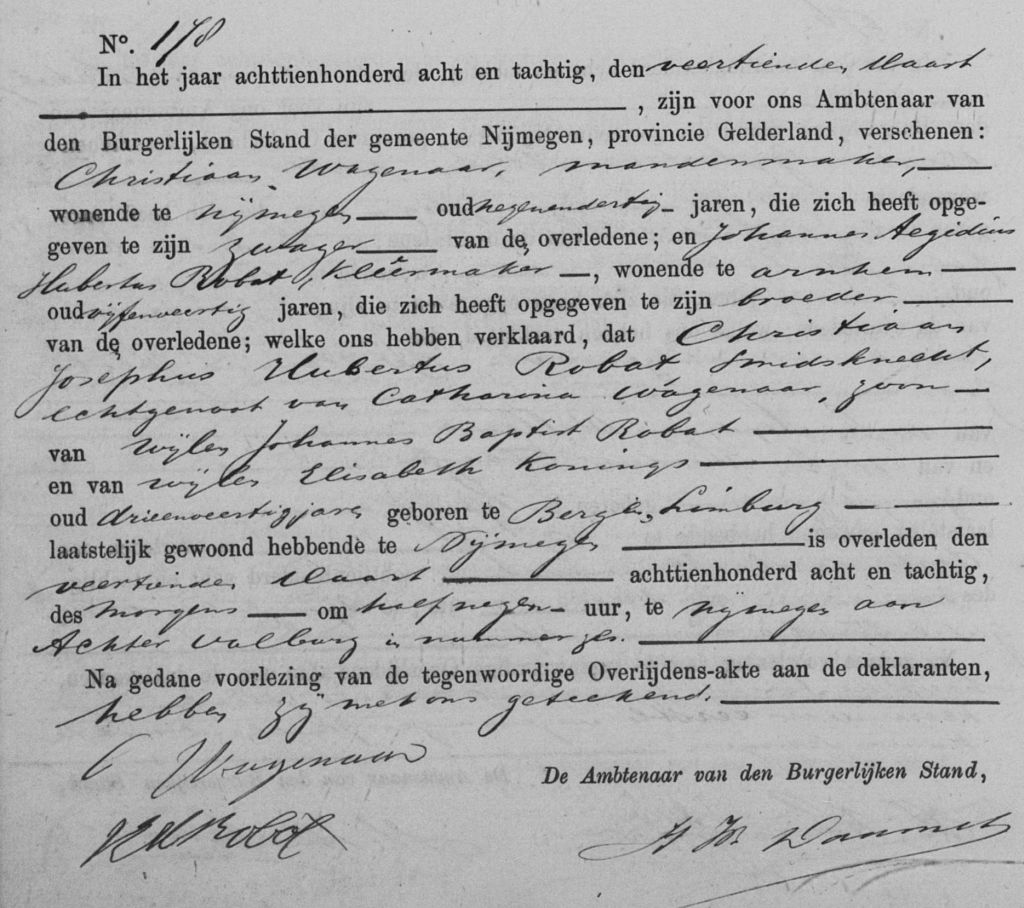 No. 178
In het jaar achttienhonderd acht en tachtig, den veertienden Maart
, zijn voor ons Ambtenaar van
den Burgerlijken Stand der gemeente Nijmegen, provincie Gelderland, verschenen:
Christiaan Wagenaar, mandenmaker,
wonende te Nijmegen oud negenendertig jaren, die zich heeft opge-
geven te zijn zwager van de overledene; en Johannes Aegidius
Hubertus Robat, kleêrmaker, wonende te Arnhem
oud vijfenveertig jaren, die zich heeft opgegeven te zijn broeder
van de overledene; welke ons hebben verklaard, dat Christiaan
Josephus Hubertus Robat, Smidsknecht,
echtgenoot van Catharina Wagenaar, zoon
van wijlen Johannes Baptist Robat
en van wijlen Elisabeth Konings
oud drieenveertig jaren geboren te Bergen, Limburg
laatstelijk gewoond hebbende te Nijmegen is overleden den
veertienden Maart achttienhonderd acht en tachtig,
des morgens om half negen uur, te Nijmegen aan
Achter Valburg in nummer zes.
Na gedane voorlezing van de tegenwoordige Overlijdens-akte aan de deklaranten,
hebben zij met ons geteekend.
C Wagenaar
De Ambtenaar van den Burgerlijken Stand,
Robat